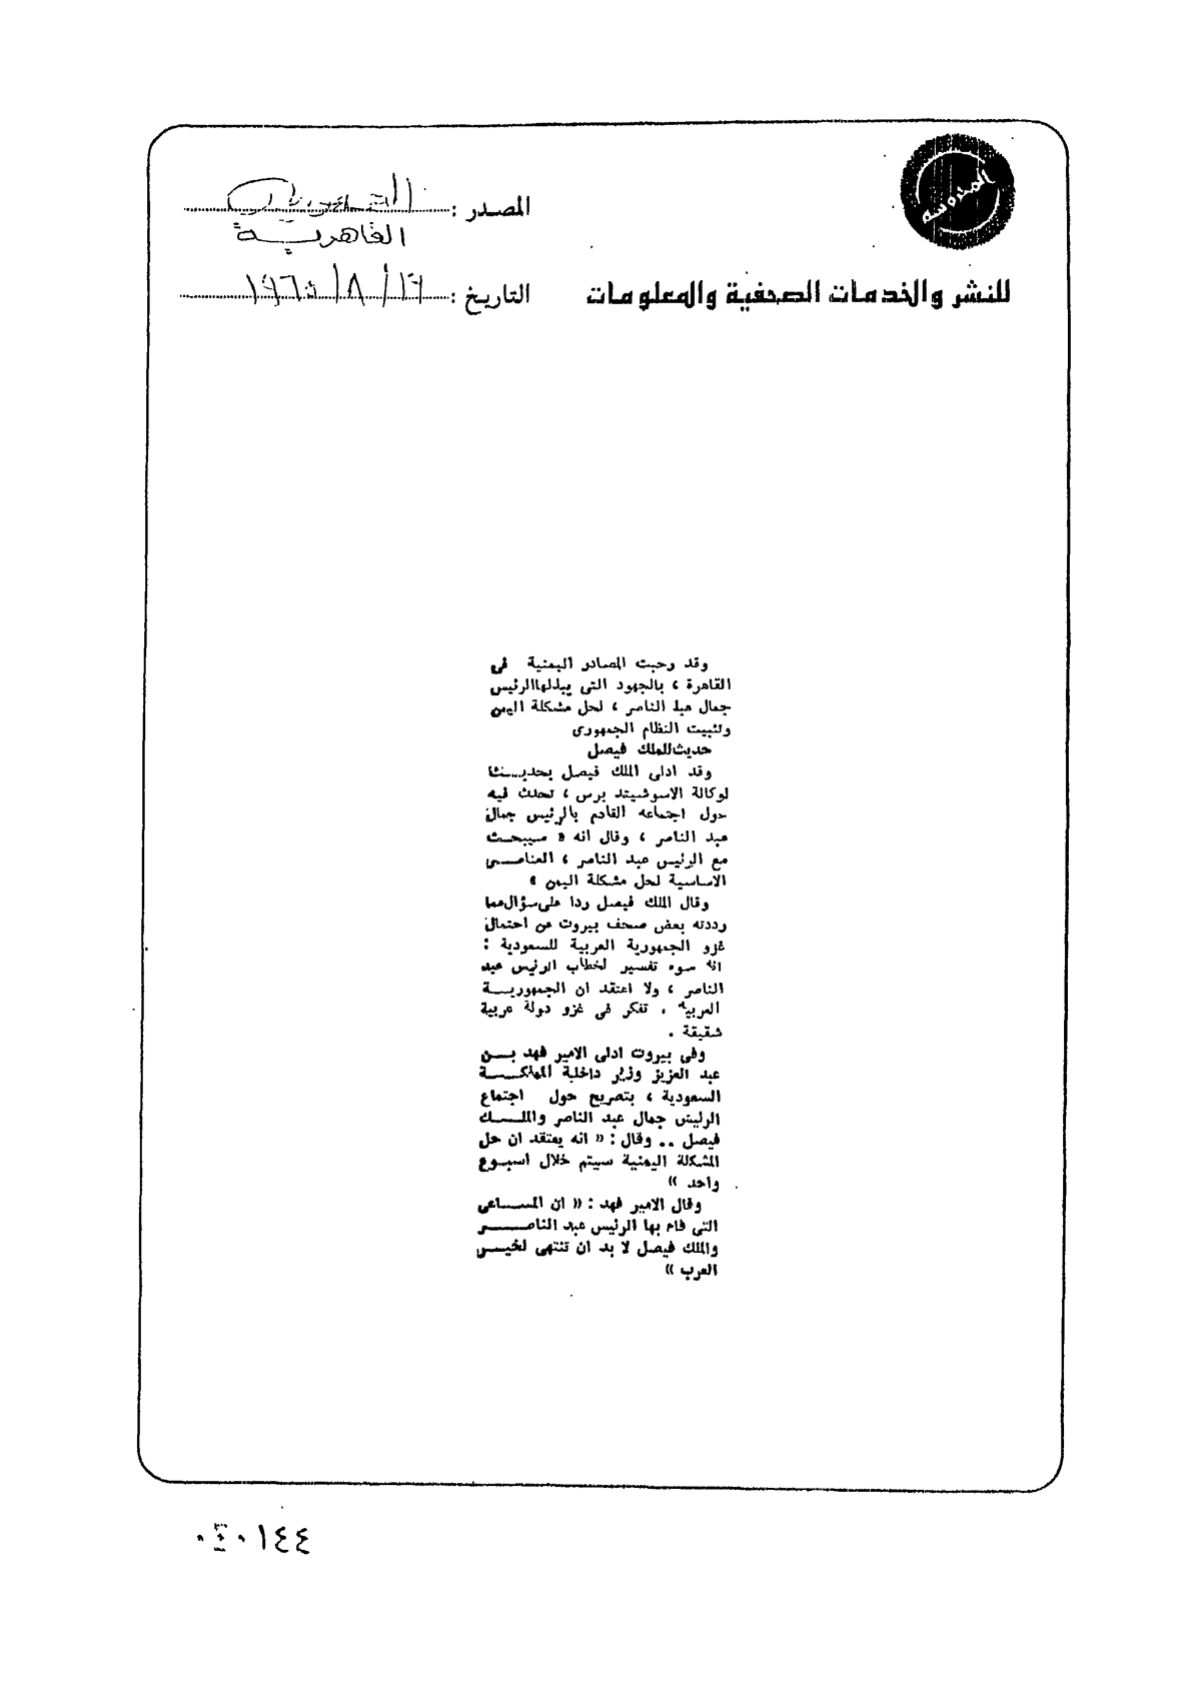 المحروسة
المصدر :
القاهرية
للنشر والخدمات الصحفية والمعلومات
التاريخ : ١٦/ ٨/ ١٩٦٥
وقد رحبت المصادر اليمنية فى
القاهرة ، بالجهود التى يبذلها الرئيس
جمال عبد الناصر ، لحل مشكلة اليمن
وتثبيت النظام الجمهورى
حديث للملك فيصل
وقد ادلى الملك فيصل بحديـــث
لوكالة الاسوشيتد برس ، تحدث فيه
حول اجتماعه القادم بالرئيس جمال
عبد الناصر ، وقال انه « سيبحــث
مع الرئيس عبد الناصر ، العناصــر
الاساسية لحل مشكلة اليمن »
وقال الملك فيصل ردا على سؤال عما
رددته بعض صحف بيروت عن احتمال
غزو الجمهورية العربية للسعودية :
انه سوء تفسير لخطاب الرئيس عبد
الناصر ، ولا اعتقد ان الجمهوريــة
العربية ، تفكر فى غزو دولة عربية
شقيقة .
وفى بيروت ادلى الامير فهد بــن
عبد العزيز وزير داخلية المملكــــة
السعودية ، بتصريح حول اجتماع
الرئيس جمال عبد الناصر والملــك
فيصل .. وقال : « انه يعتقد ان حل
المشكلة اليمنية سيتم خلال اسبـوع
واحد »
وقال الامير فهد : « ان المســـاعى
التى قام بها الرئيس عبد الناصـــر
والملك فيصل لا بد ان تنتهى لخيــر
العرب »